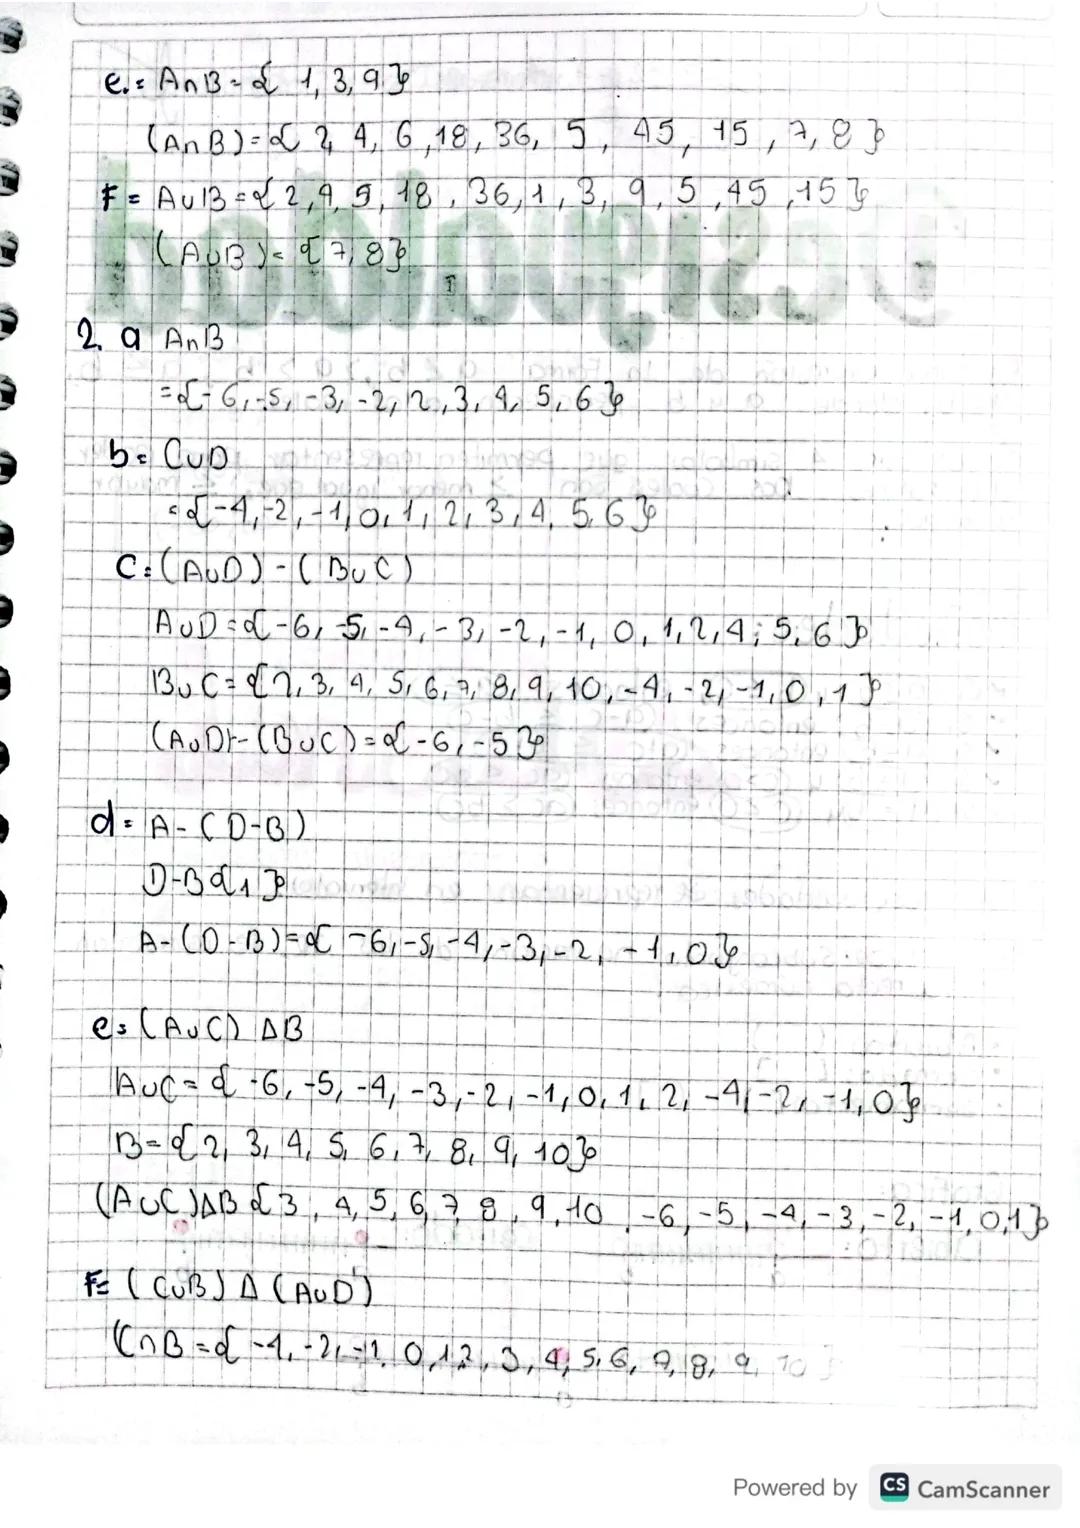 e.= A∩B = { 1, 3, 9 }
(A∩B) = { 2, 4, 6, 18, 36, 5, 45, 15, 7, 8 }
F = A∪B = { 2, 4, 9, 18, 36, 1, 3, 9, 5, 45, 15 }
(A∪B) = { 7, 8 }
2. a A∩B
= { -6, -5, -3, -2, 2, 3, 4, 5, 6 }
b= C∪D
= { -4, -2, -1, 0, 1, 2, 3, 4, 5, 6 }
C = (A∪D) - ( B∪C )
A∪D = { -6, -5, -4, -3, -2, -1, 0, 1, 2, 4; 5, 6 }
B∪C = { 2, 3, 4, 5, 6, 7, 8, 9, 10, -4, -2, -1, 0, 1 }
(A∪D) - (B∪C) = { -6, -5 }
d= A - ( D-B )
D-B { 1 }
A - (D-B) = { -6, -5, -4, -3, -2, -1, 0 }
e= (A∪C) ΔB
A∪C = { -6, -5, -4, -3, -2, -1, 0, 1, 2, -4, -2, -1, 0 }
B = { 2, 3, 4, 5, 6, 7, 8, 9, 10 }
(A∪C)ΔB { 3, 4, 5, 6, 7, 8, 9, 10, -6, -5, -4, -3, -2, -1, 0, 1 }
F= ( C∪B ) Δ (A∪D)
(C∩B = { -4, -2, -1, 0, 1, 2, 3, 4, 5, 6, 7, 8, 9, 10 }
Powered by CS CamScanner